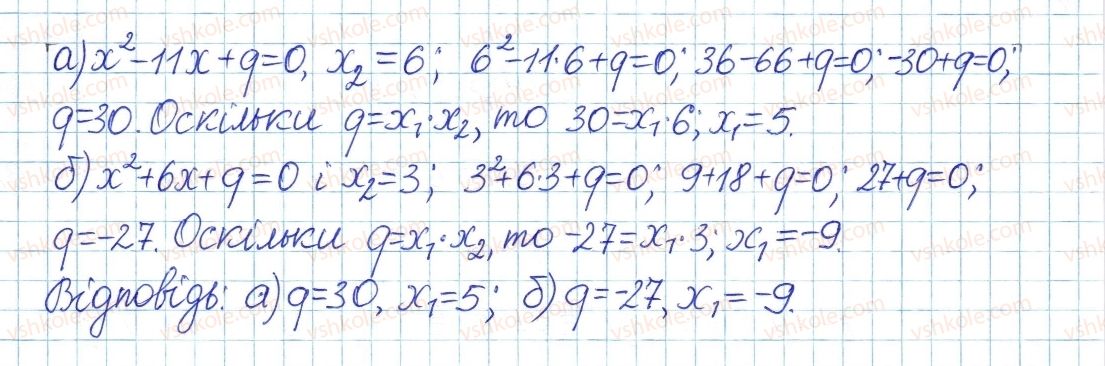 а) x²-11x+q=0, x₂=6; 6²-11·6+q=0; 36-66+q=0; -30+q=0;
q=30. Оскільки q=x₁·x₂, то 30=x₁·6; x₁=5.
б) x²+6x+q=0 і x₂=3; 3²+6·3+q=0; 9+18+q=0; 27+q=0;
q=-27. Оскільки q=x₁·x₂, то -27=x₁·3; x₁=-9.
Відповідь: а) q=30, x₁=5; б) q=-27, x₁=-9.